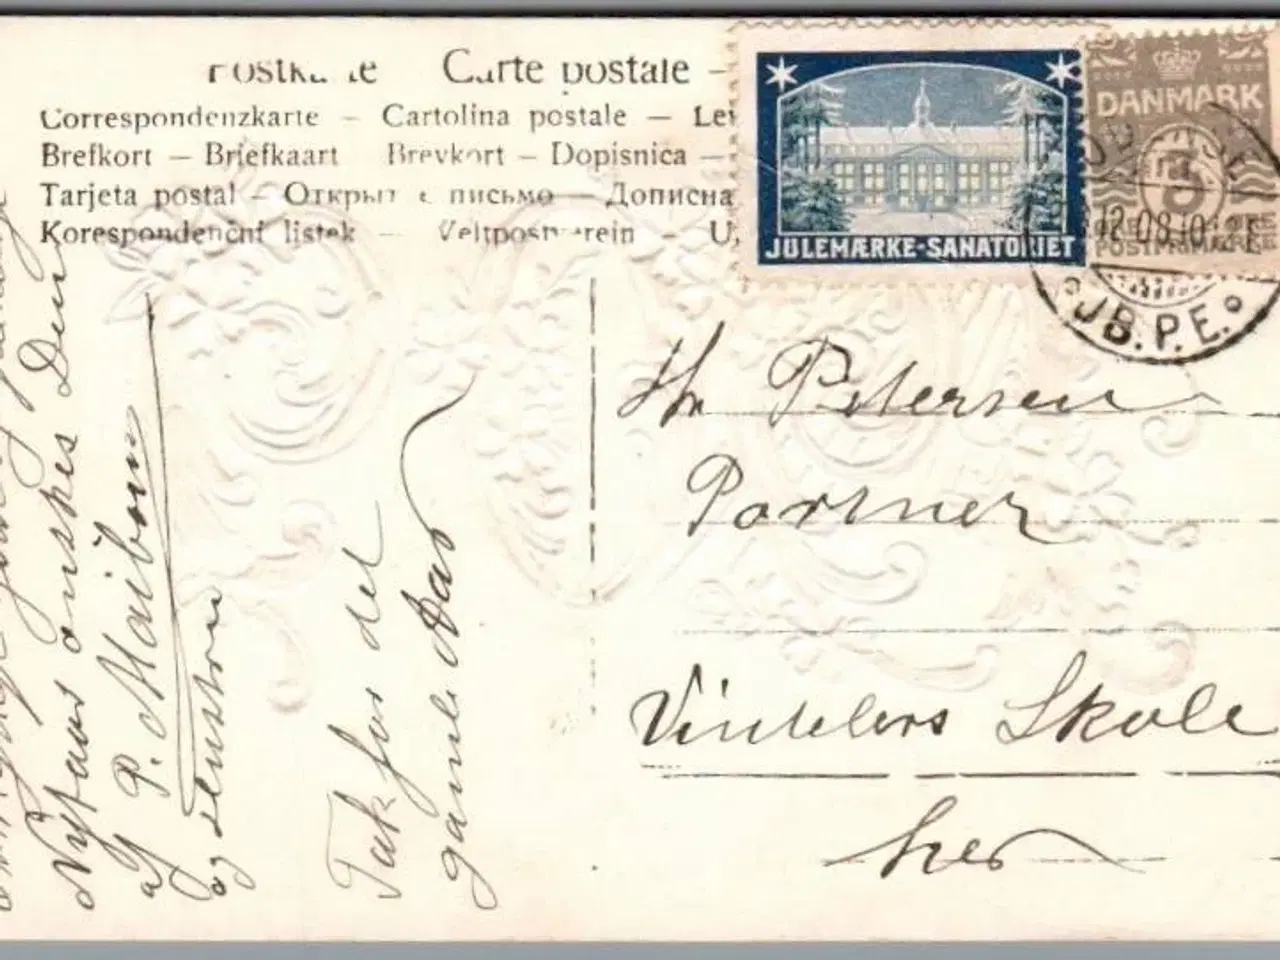 Postkarte Carte postale –
Correspondenzkarte – Cartolina postale – Lev
Brefkort – Briefkaart Brevkort – Dopisnica –
Tarjeta postal – Открыт е письмо – Дописна
Korespondenční listek – Weltpostverein – U
JULEMÆRKE-SANATORIET
DANMARK
5
POSTFRIMÆRKE
ODENSE
12.08.10
JB.P.E.
Hr Petersen
Portner
Vintelers Skole
her
Nytaar ønskes Dem
af P. Maibom
og
Tak for det
gamle Aar